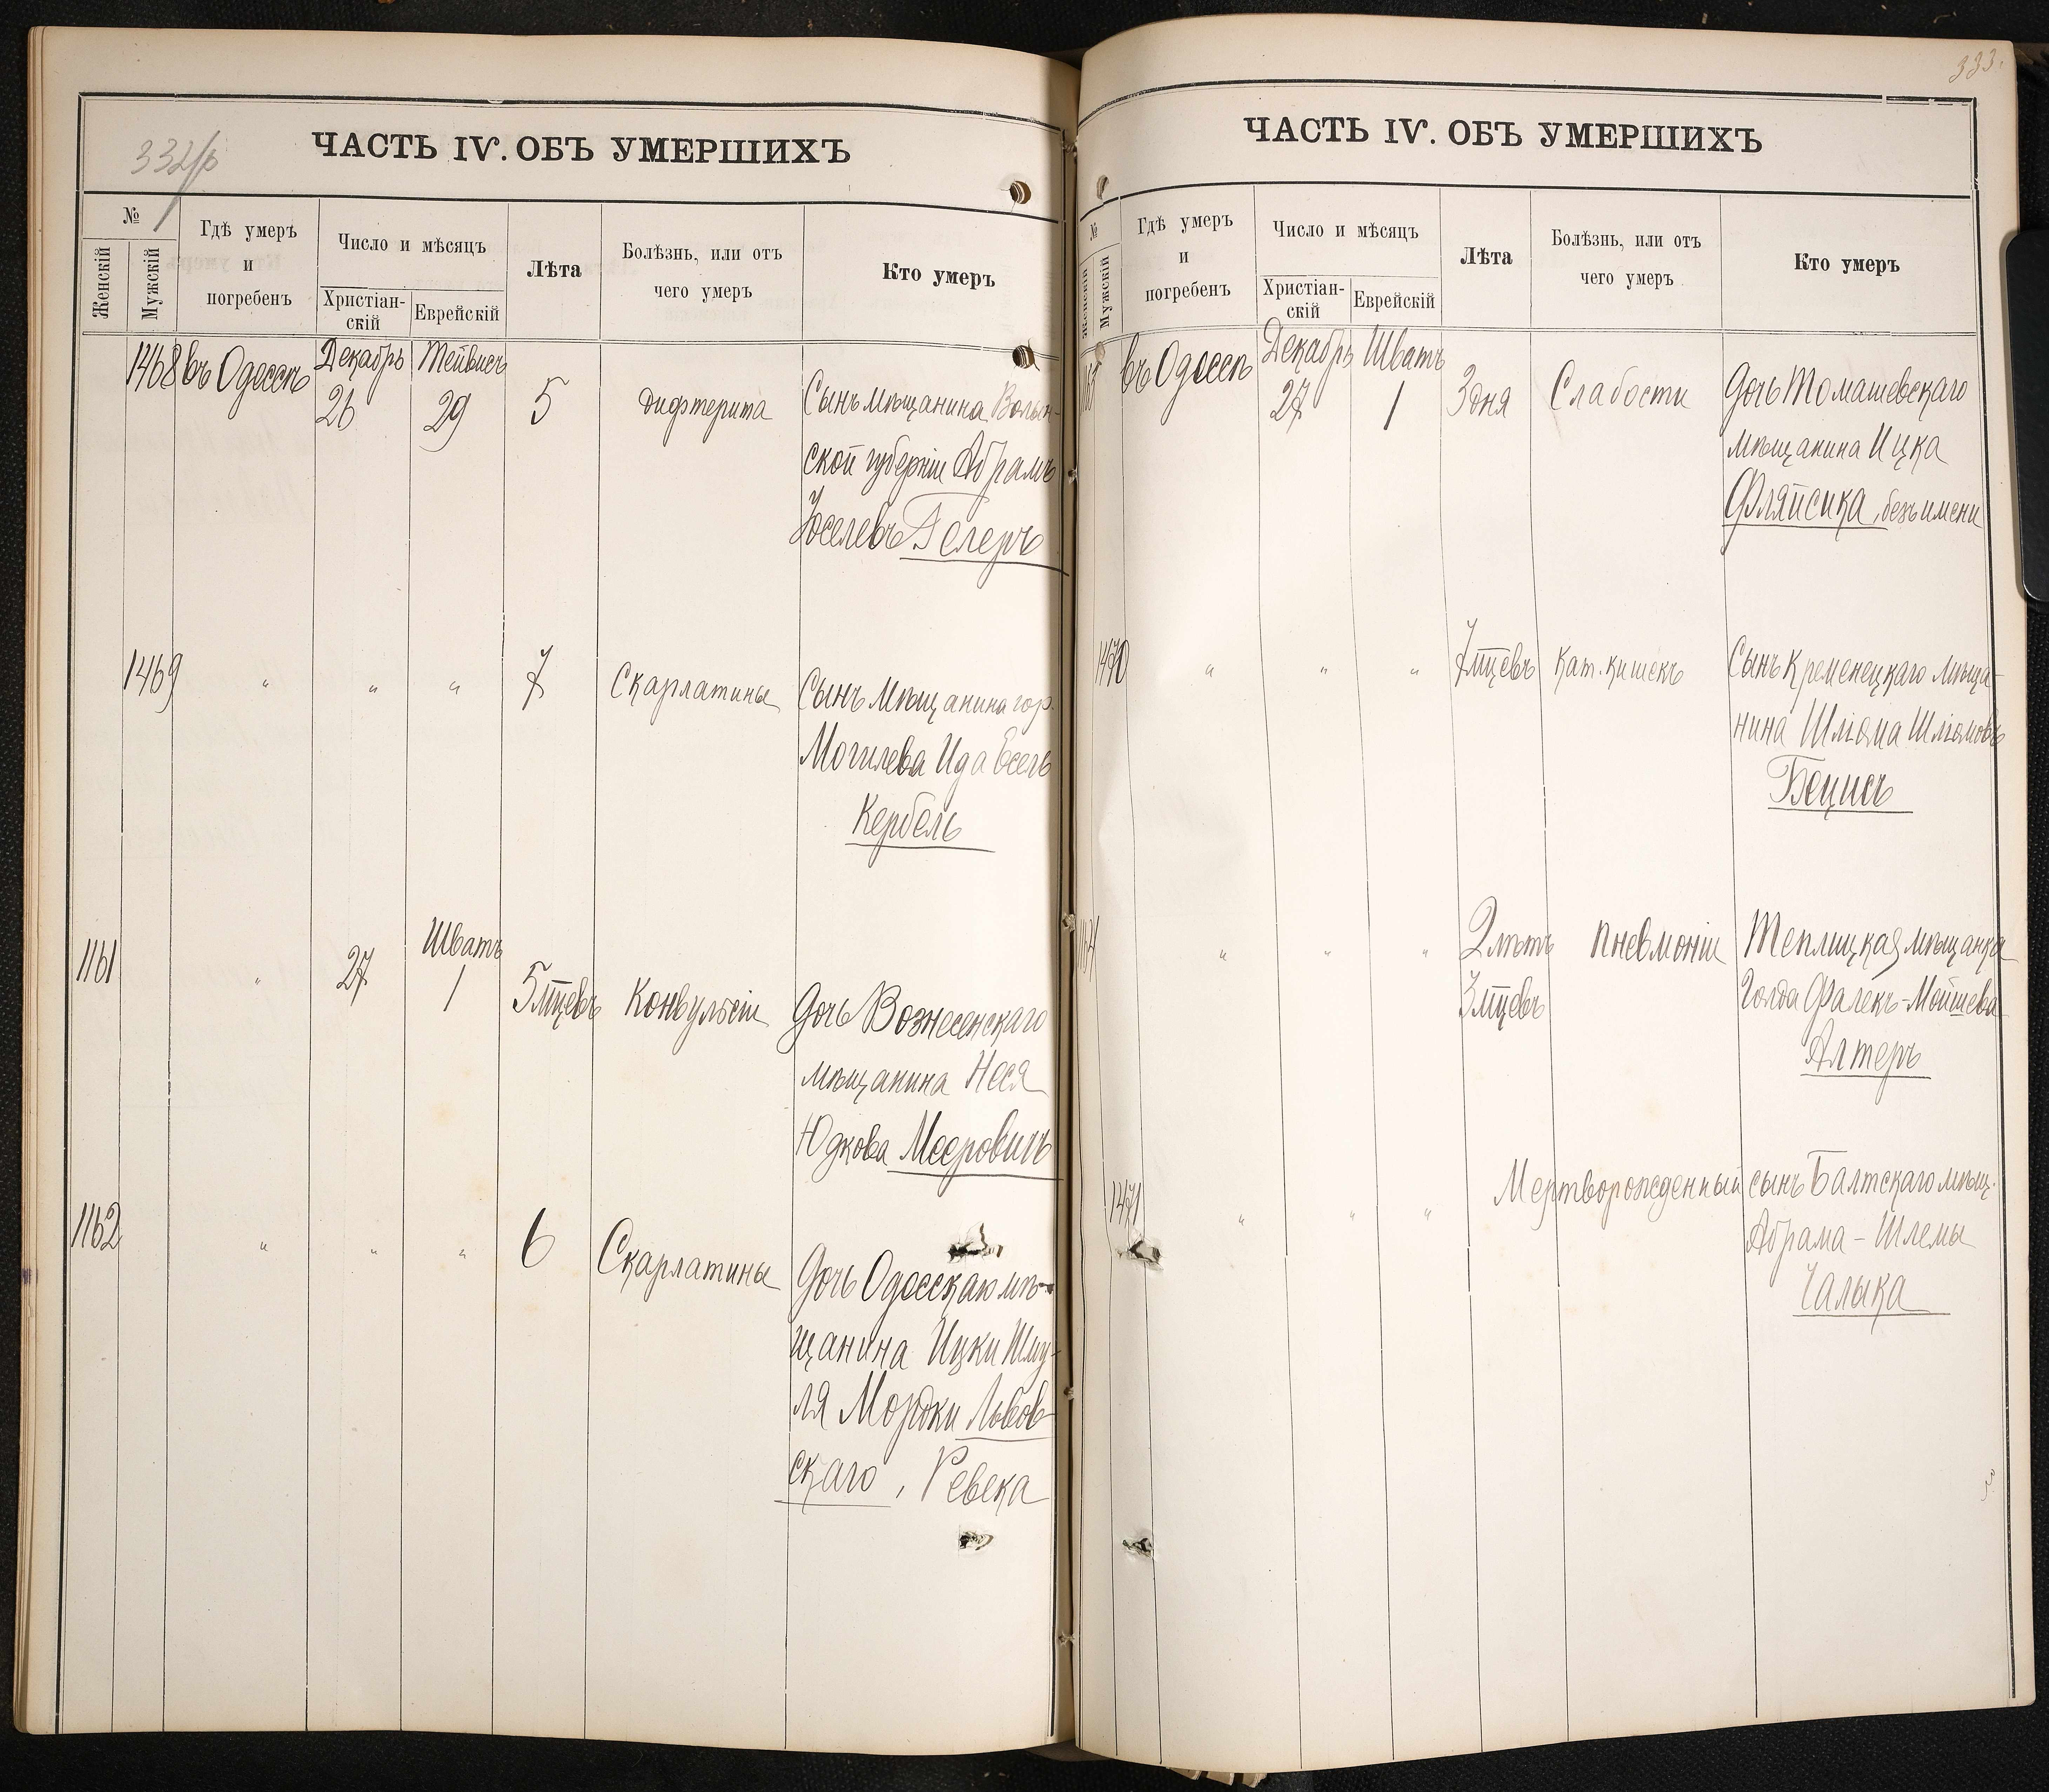 332/р
ЧАСТЬ IV. ОБЪ УМЕРШИХЪ
№
Женскій
Мужскій
Гдѣ умеръ
и
погребенъ
Число и мѣсяцъ
Христіан-
скій
Еврейскій
Лѣта
Болѣзнь, или отъ
чего умеръ
Кто умеръ
1468 въ Одессѣ Декабрь 26 Тейвисъ 29 5 дифтерита Сынъ мѣщанина Волын-
ской губерніи Абрамъ
Іоселевъ Гелеръ
1469 " " " 7 Скарлатины Сынъ мѣщанина гор.
Могилева Ида Есель
Кербель
1161 " 27 Шватъ 1 5 мцевъ Конвульсіи Дочь Вознесенскаго
мѣщанина Неся
Юдкова Мееровичъ
1162 " " " 6 Скарлатины Дочь Одесскаго мѣ-
щанина Ицки Шму-
ля Мордки Львов-
скаго, Ревека
333.
ЧАСТЬ IV. ОБЪ УМЕРШИХЪ
№
Женскій
Мужскій
Гдѣ умеръ
и
погребенъ
Число и мѣсяцъ
Христіан-
скій
Еврейскій
Лѣта
Болѣзнь, или отъ
чего умеръ
Кто умеръ
въ Одессѣ Декабрь 27 Шватъ 1 3 дня Слабости Дочь Томашевскаго
мѣщанина Ицка
Фляйсика, безъ имени
1470 " " " 7 мцевъ Кат. кишекъ Сынъ Кременецкаго мѣща-
нина Шліома Шліомовъ
Бецисъ
" " " 2 лѣтъ Пневмоніи Теплицкая мѣщанка
3 мцевъ Голда Фалекъ-Мойшева
Алтеръ
1471 " " " Мертворожденный сынъ Балтскаго мѣщ.
Абрама - Шлемы
Галыка